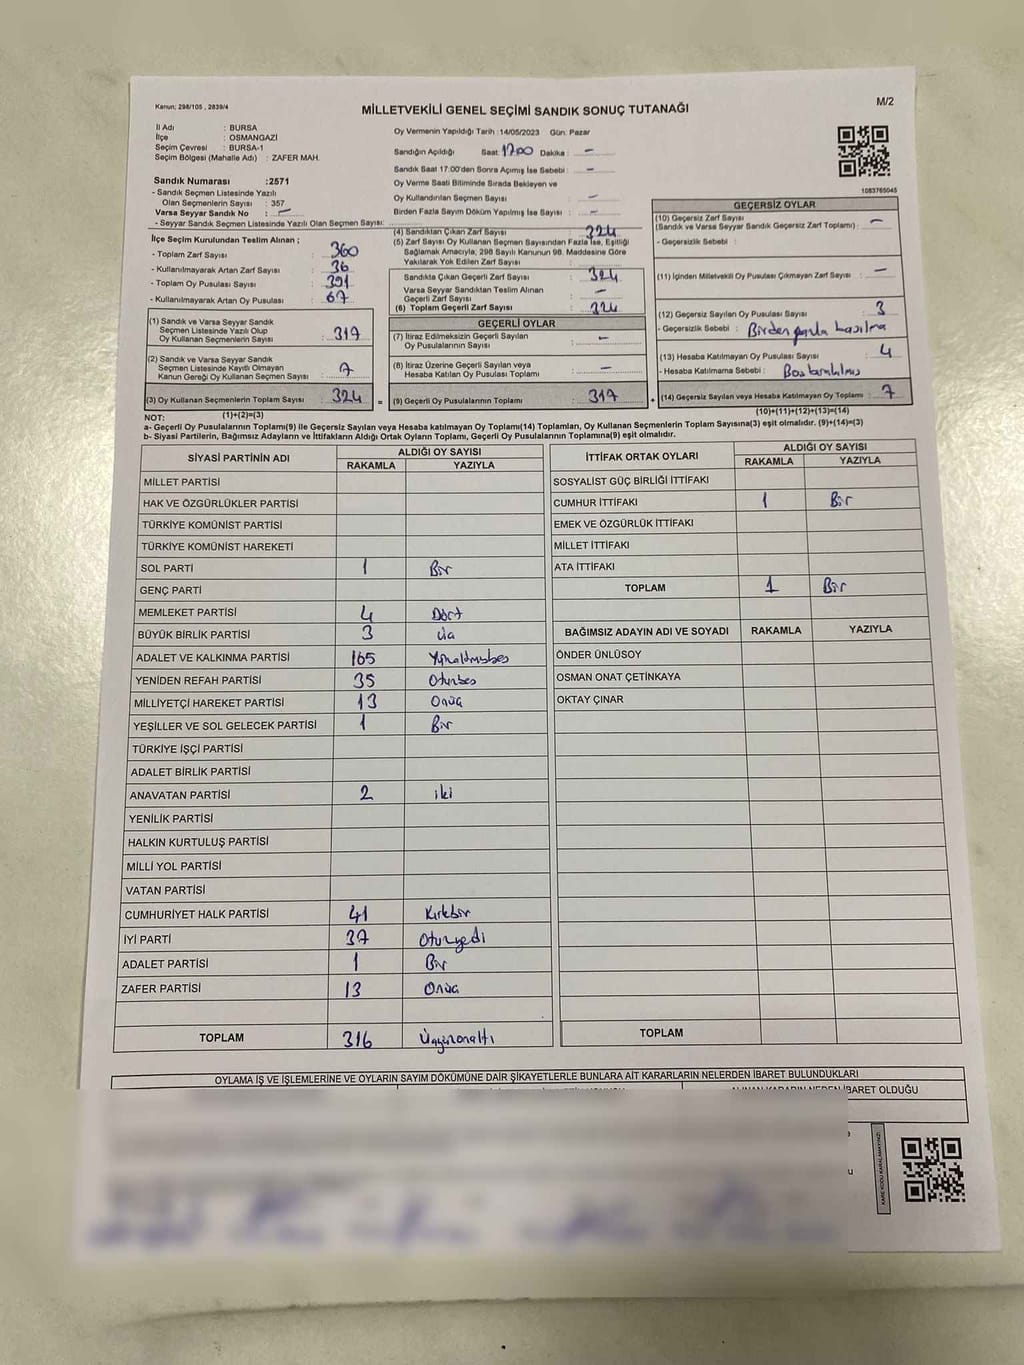 Kanun: 298/105 , 2839/4
M/2
MİLLETVEKİLİ GENEL SEÇİMİ SANDIK SONUÇ TUTANAĞI
İl Adı : BURSA
İlçe : OSMANGAZİ
Seçim Çevresi : BURSA-1
Seçim Bölgesi (Mahalle Adı) : ZAFER MAH.
Sandık Numarası :2571
- Sandık Seçmen Listesinde Yazılı
Olan Seçmenlerin Sayısı : 357
Varsa Seyyar Sandık No : –
- Seyyar Sandık Seçmen Listesinde Yazılı Olan Seçmen Sayısı:
Oy Vermenin Yapıldığı Tarih :14/05/2023 Gün: Pazar
Sandığın Açıldığı Saat: 17.00 Dakika : –
Sandık Saat 17:00'den Sonra Açılmış İse Sebebi : –
Oy Verme Saati Bitiminde Sırada Bekleyen ve
Oy Kullandırılan Seçmen Sayısı : –
Birden Fazla Sayım Döküm Yapılmış İse Sayısı : –
1083765045
İlçe Seçim Kurulundan Teslim Alınan ;
- Toplam Zarf Sayısı : 360
- Kullanılmayarak Artan Zarf Sayısı : 36
- Toplam Oy Pusulası Sayısı : 391
- Kullanılmayarak Artan Oy Pusulası : 67
(1) Sandık ve Varsa Seyyar Sandık
Seçmen Listesinde Yazılı Olup
Oy Kullanan Seçmenlerin Sayısı : 317
(2) Sandık ve Varsa Seyyar Sandık
Seçmen Listesinde Kayıtlı Olmayan
Kanun Gereği Oy Kullanan Seçmen Sayısı : 7
(3) Oy Kullanan Seçmenlerin Toplam Sayısı : 324
(4) Sandıktan Çıkan Zarf Sayısı : 324
(5) Zarf Sayısı Oy Kullanan Seçmen Sayısından Fazla İse, Eşitliği
Sağlamak Amacıyla, 298 Sayılı Kanunun 98. Maddesine Göre
Yakılarak Yok Edilen Zarf Sayısı :
Sandıkta Çıkan Geçerli Zarf Sayısı : 324
Varsa Seyyar Sandıktan Teslim Alınan
Geçerli Zarf Sayısı : –
(6) Toplam Geçerli Zarf Sayısı : 324
GEÇERLİ OYLAR
(7) İtiraz Edilmeksizin Geçerli Sayılan
Oy Pusulalarının Sayısı : –
(8) İtiraz Üzerine Geçerli Sayılan veya
Hesaba Katılan Oy Pusulası Toplamı : –
= (9) Geçerli Oy Pusulalarının Toplamı : 317
GEÇERSİZ OYLAR
(10) Geçersiz Zarf Sayısı
(Sandık ve Varsa Seyyar Sandık Geçersiz Zarf Toplamı) : –
- Geçersizlik Sebebi :
(11) İçinden Milletvekili Oy Pusulası Çıkmayan Zarf Sayısı : –
(12) Geçersiz Sayılan Oy Pusulası Sayısı : 3
- Geçersizlik Sebebi : Birden fazla basılma
(13) Hesaba Katılmayan Oy Pusulası Sayısı : 4
- Hesaba Katılmama Sebebi : Boş bırakılmış
(14) Geçersiz Sayılan veya Hesaba Katılmayan Oy Toplamı : 7
NOT: (1)+(2)=(3)
(10)+(11)+(12)+(13)=(14)
a- Geçerli Oy Pusulaları Toplamı(9) ile Geçersiz Sayılan veya Hesaba katılmayan Oy Toplamı(14) Toplamları, Oy Kullanan Seçmenlerin Toplam Sayısına(3) eşit olmalıdır. (9)+(14)=(3)
b- Siyasi Partilerin, Bağımsız Adayların ve İttifakların Aldığı Ortak Oyların Toplamı, Geçerli Oy Pusulalarının Toplamına(9) eşit olmalıdır.
SİYASİ PARTİNİN ADI ALDIĞI OY SAYISI
RAKAMLA YAZIYLA
MİLLET PARTİSİ
HAK VE ÖZGÜRLÜKLER PARTİSİ
TÜRKİYE KOMÜNİST PARTİSİ
TÜRKİYE KOMÜNİST HAREKETİ
SOL PARTİ 1 Bir
GENÇ PARTİ
MEMLEKET PARTİSİ 4 Dört
BÜYÜK BİRLİK PARTİSİ 3 üç
ADALET VE KALKINMA PARTİSİ 165 Yüzaltmışbeş
YENİDEN REFAH PARTİSİ 35 Otuzbeş
MİLLİYETÇİ HAREKET PARTİSİ 13 Onüç
YEŞİLLER VE SOL GELECEK PARTİSİ 1 Bir
TÜRKİYE İŞÇİ PARTİSİ
ADALET BİRLİK PARTİSİ
ANAVATAN PARTİSİ 2 iki
YENİLİK PARTİSİ
HALKIN KURTULUŞ PARTİSİ
MİLLİ YOL PARTİSİ
VATAN PARTİSİ
CUMHURİYET HALK PARTİSİ 41 Kırkbir
İYİ PARTİ 37 Otuzyedi
ADALET PARTİSİ 1 Bir
ZAFER PARTİSİ 13 Onüç
TOPLAM 316 Üçyüzonaltı
İTTİFAK ORTAK OYLARI ALDIĞI OY SAYISI
RAKAMLA YAZIYLA
SOSYALİST GÜÇ BİRLİĞİ İTTİFAKI
CUMHUR İTTİFAKI 1 Bir
EMEK VE ÖZGÜRLÜK İTTİFAKI
MİLLET İTTİFAKI
ATA İTTİFAKI
TOPLAM 1 Bir
BAĞIMSIZ ADAYIN ADI VE SOYADI RAKAMLA YAZIYLA
ÖNDER ÜNLÜSOY
OSMAN ONAT ÇETİNKAYA
OKTAY ÇINAR
TOPLAM
OYLAMA İŞ VE İŞLEMLERİNE VE OYLARIN SAYIM DÖKÜMÜNE DAİR ŞİKAYETLERLE BUNLARA AİT KARARLARIN NELERDEN İBARET BULUNDUKLARI
ALINAN KARARIN NEDEN İBARET OLDUĞU
KARE KODU KARALAMAYINIZ!